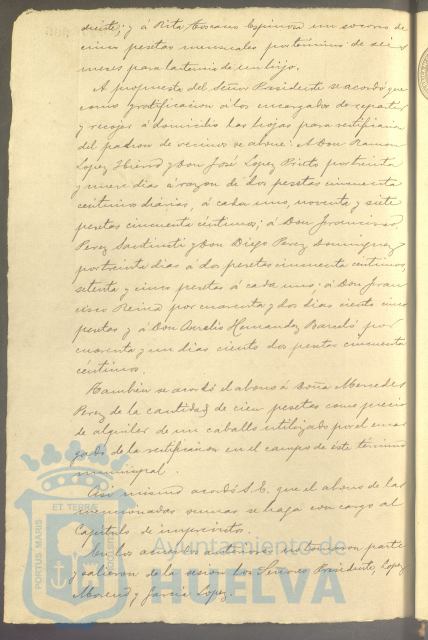 diente; y á Rita Toscano Espinosa un socorro de
cinco pesetas mensuales por término de seis
meses para lactancia de un hijo.
A propuesta del Señor Presidente se acordó que
como gratificacion á los encargados de repartir
y recojer á domicilio las hojas para rectificacion
del padron de vecinos se abone: A Don Ramon
Lopez Hierro y Don José Lopez Prieto por treinta
y nueve dias á razon de dos pesetas cincuenta
céntimos diarios, á cada uno, noventa y siete
pesetas cincuenta céntimos; á Don Francisco
Perez y Don Diego Perez Dominguez
por treinta dias á dos pesetas cincuenta céntimos
setenta y cinco pesetas á cada uno; á Don Fran
cisco Reina por cuarenta y dos dias ciento cinco
pesetas y á Don Aurelio Hernandez Barceló por
cuarenta y un dias ciento dos pesetas cincuenta
céntimos.
Tambien se acordó el abono á Doña Mercedes
Perez de la cantidad de cien pesetas como precio
de alquiler de un caballo utilizado por el encar
gado de la rectificacion en el campo de este término
municipal.
Asi mismo acordó S.E. que el abono de las
mencionadas sumas se haga con cargo al
Capítulo de imprevistos.
En los acuerdos anteriores no tomaron parte
y salieron de la sesion los Señores Presidente, Lopez
Moreno y Garcia Lopez.
PORTUS MARIS
ET TERRAE
Ayuntamiento de
HUELVA